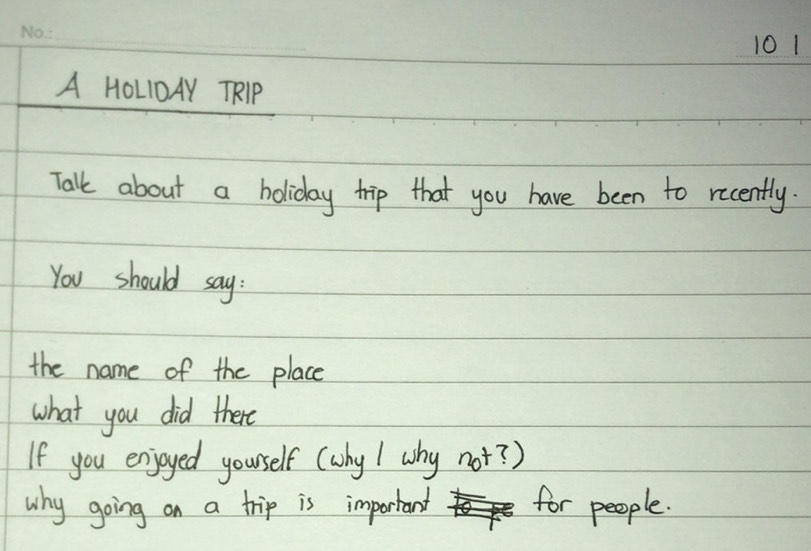 No.:
10 1
A HOLIDAY TRIP
Talk about a holiday trip that you have been to recently.
You should say:
the name of the place
what you did there
If you enjoyed yourself (why / why not?)
why going on a trip is important for people.